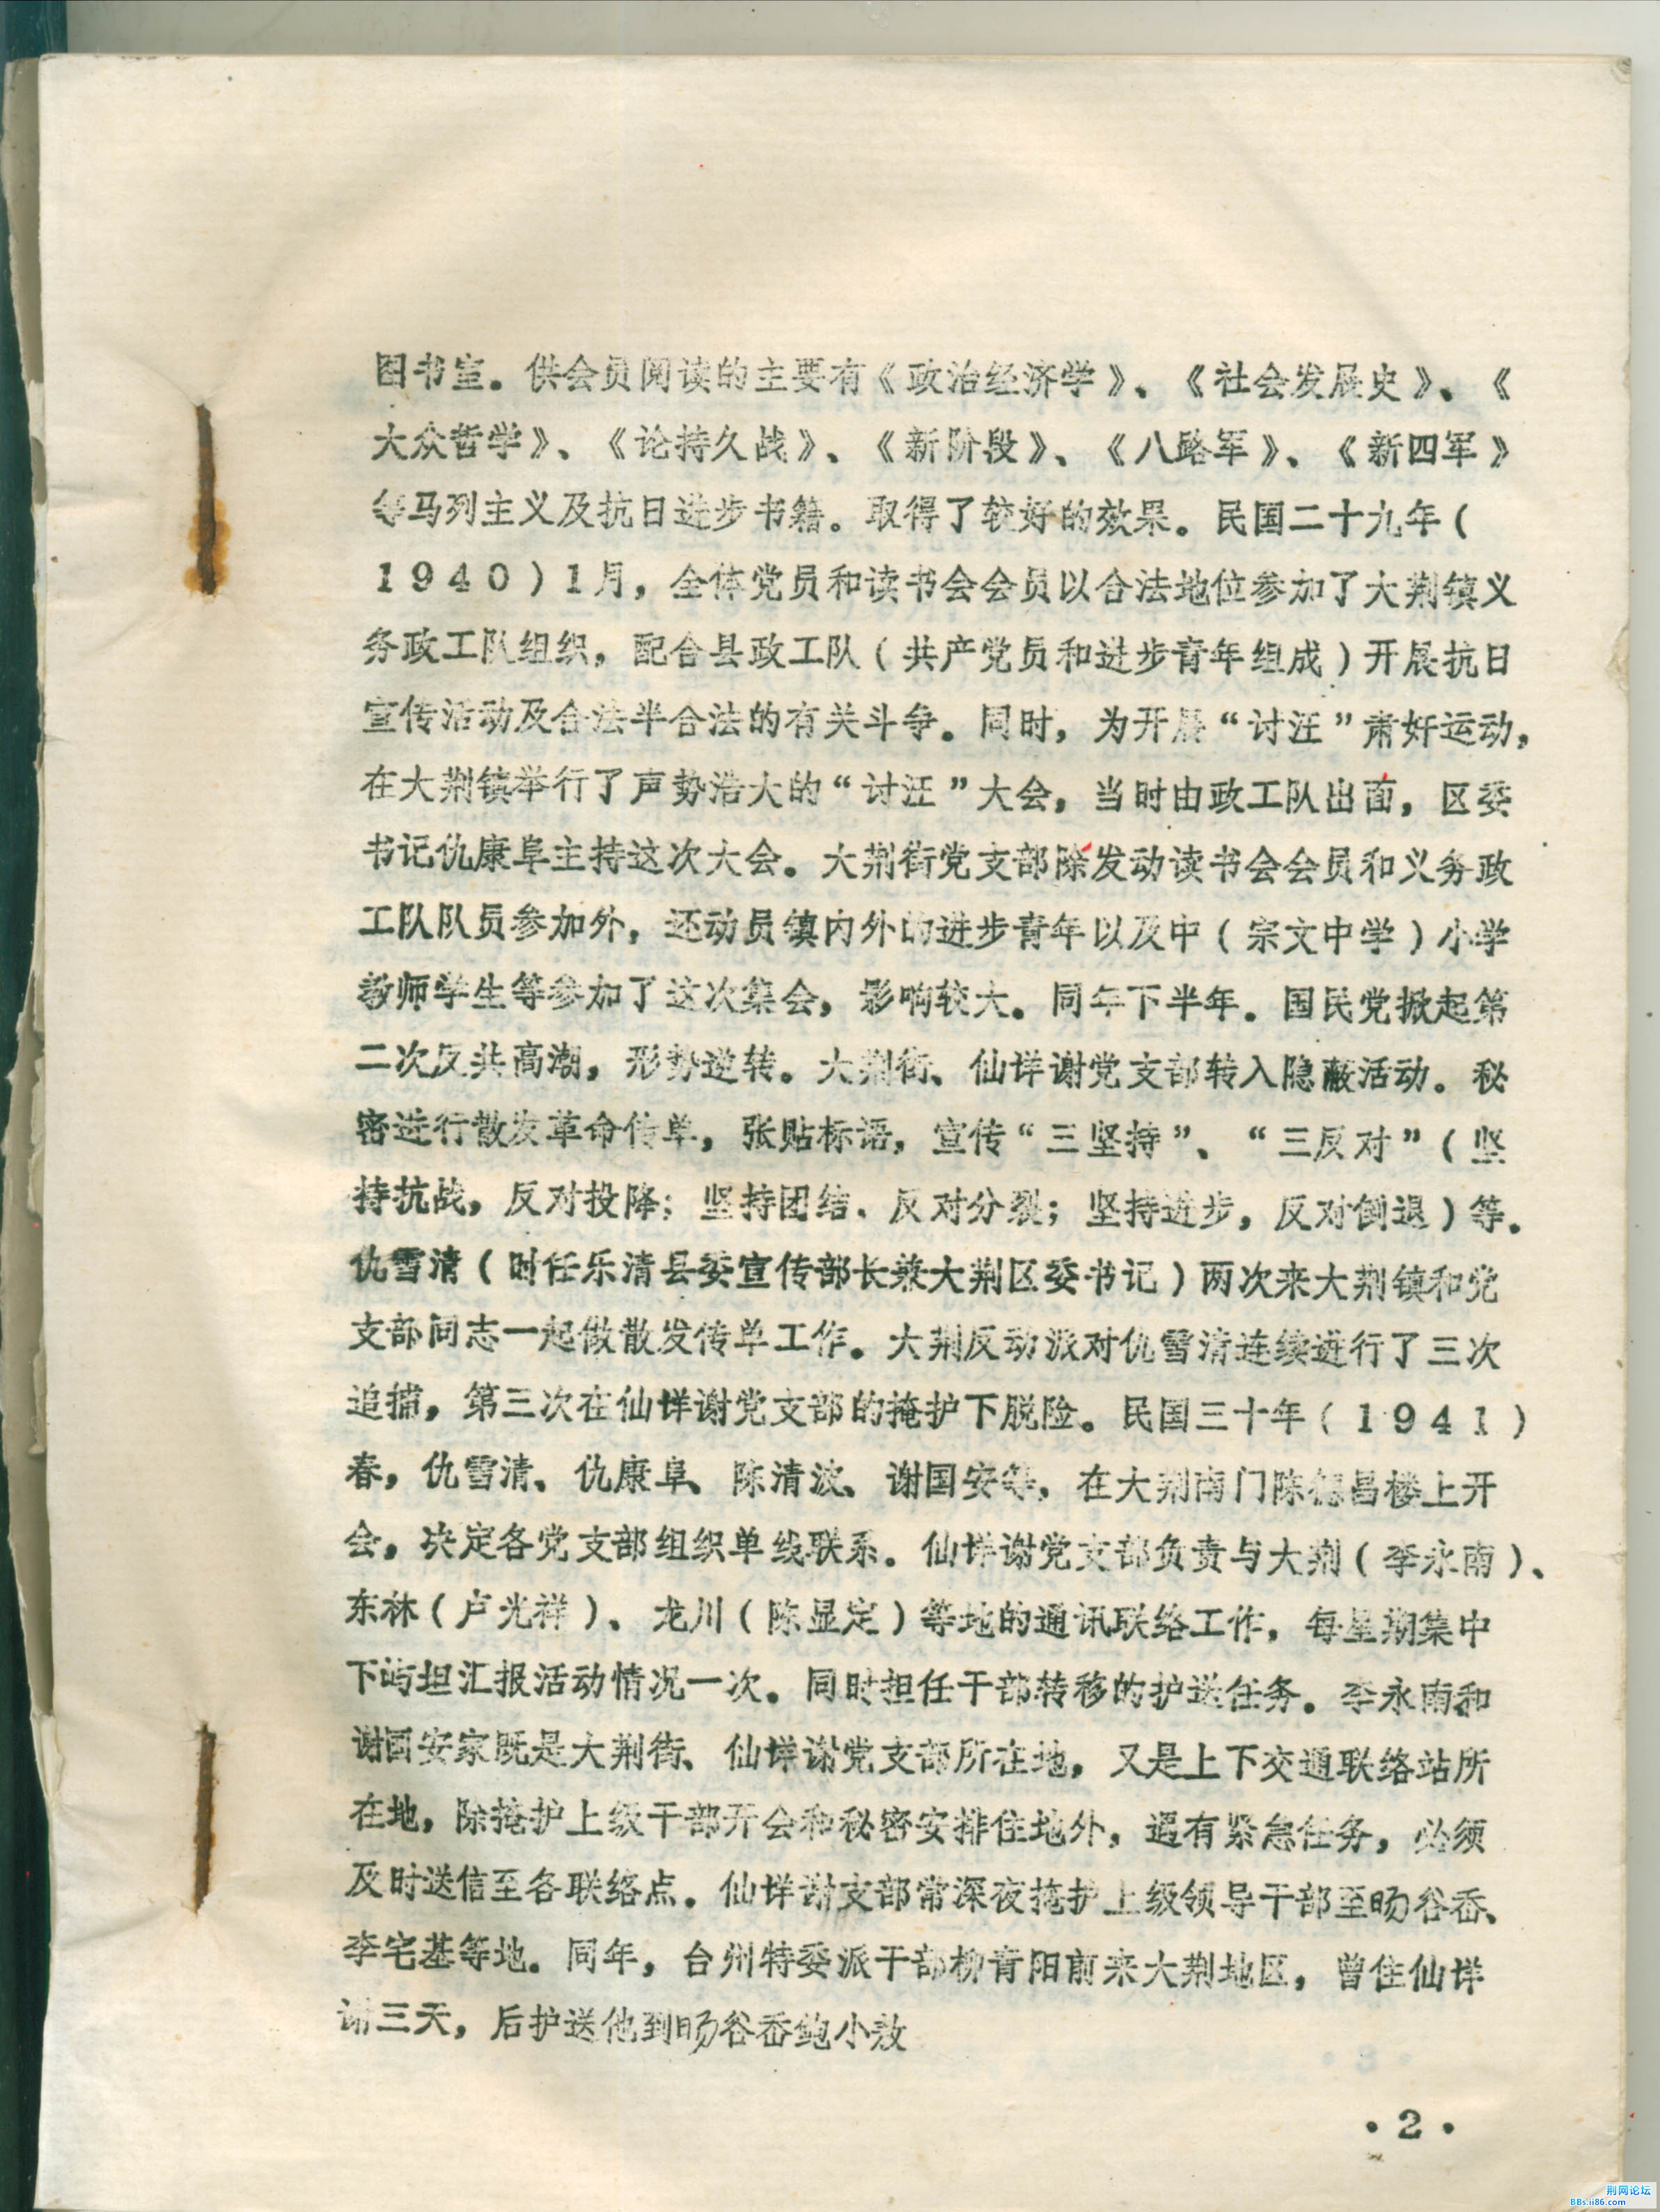 图书室。供会员阅读的主要有《政治经济学》、《社会发展史》、《
大众哲学》、《论持久战》、《新阶段》、《八路军》、《新四军》
等马列主义及抗日进步书籍。取得了较好的效果。民国二十九年（
1940）1月，全体党员和读书会会员以合法地位参加了大荆镇义
务政工队组织，配合县政工队（共产党员和进步青年组成）开展抗日
宣传活动及合法半合法的有关斗争。同时，为开展“讨汪”肃奸运动，
在大荆镇举行了声势浩大的“讨汪”大会，当时由政工队出面，区委
书记仇康阜主持这次大会。大荆街党支部除发动读书会会员和义务政
工队队员参加外，还动员镇内外的进步青年以及中（宗文中学）小学
教师学生等参加了这次集会，影响较大。同年下半年。国民党掀起第
二次反共高潮，形势逆转。大荆街、仙垟谢党支部转入隐蔽活动。秘
密进行散发革命传单，张贴标语，宣传“三坚持”、“三反对”（坚
持抗战，反对投降；坚持团结、反对分裂；坚持进步，反对倒退）等。
仇雪清（时任乐清县委宣传部长兼大荆区委书记）两次来大荆镇和党
支部同志一起做散发传单工作。大荆反动派对仇雪清连续进行了三次
追捕，第三次在仙垟谢党支部的掩护下脱险。民国三十年（1941）
春，仇雪清、仇康阜、陈清波、谢国安等，在大荆南门陈德昌楼上开
会，决定各党支部组织单线联系。仙垟谢党支部负责与大荆（李永南）、
东林（卢光祥）、龙川（陈显定）等地的通讯联络工作，每星期集中
下屿坦汇报活动情况一次。同时担任干部转移的护送任务。李永南和
谢国安家既是大荆街、仙垟谢党支部所在地，又是上下交通联络站所
在地，除掩护上级干部开会和秘密安排住地外，遇有紧急任务，必须
及时送信至各联络点。仙垟谢支部常深夜掩护上级领导干部至旸谷岙、
李宅基等地。同年，台州特委派干部柳青阳前来大荆地区，曾住仙垟
谢三天，后护送他到旸谷岙鲍小敖
·2·
荆网论坛
BBs.ii86.com